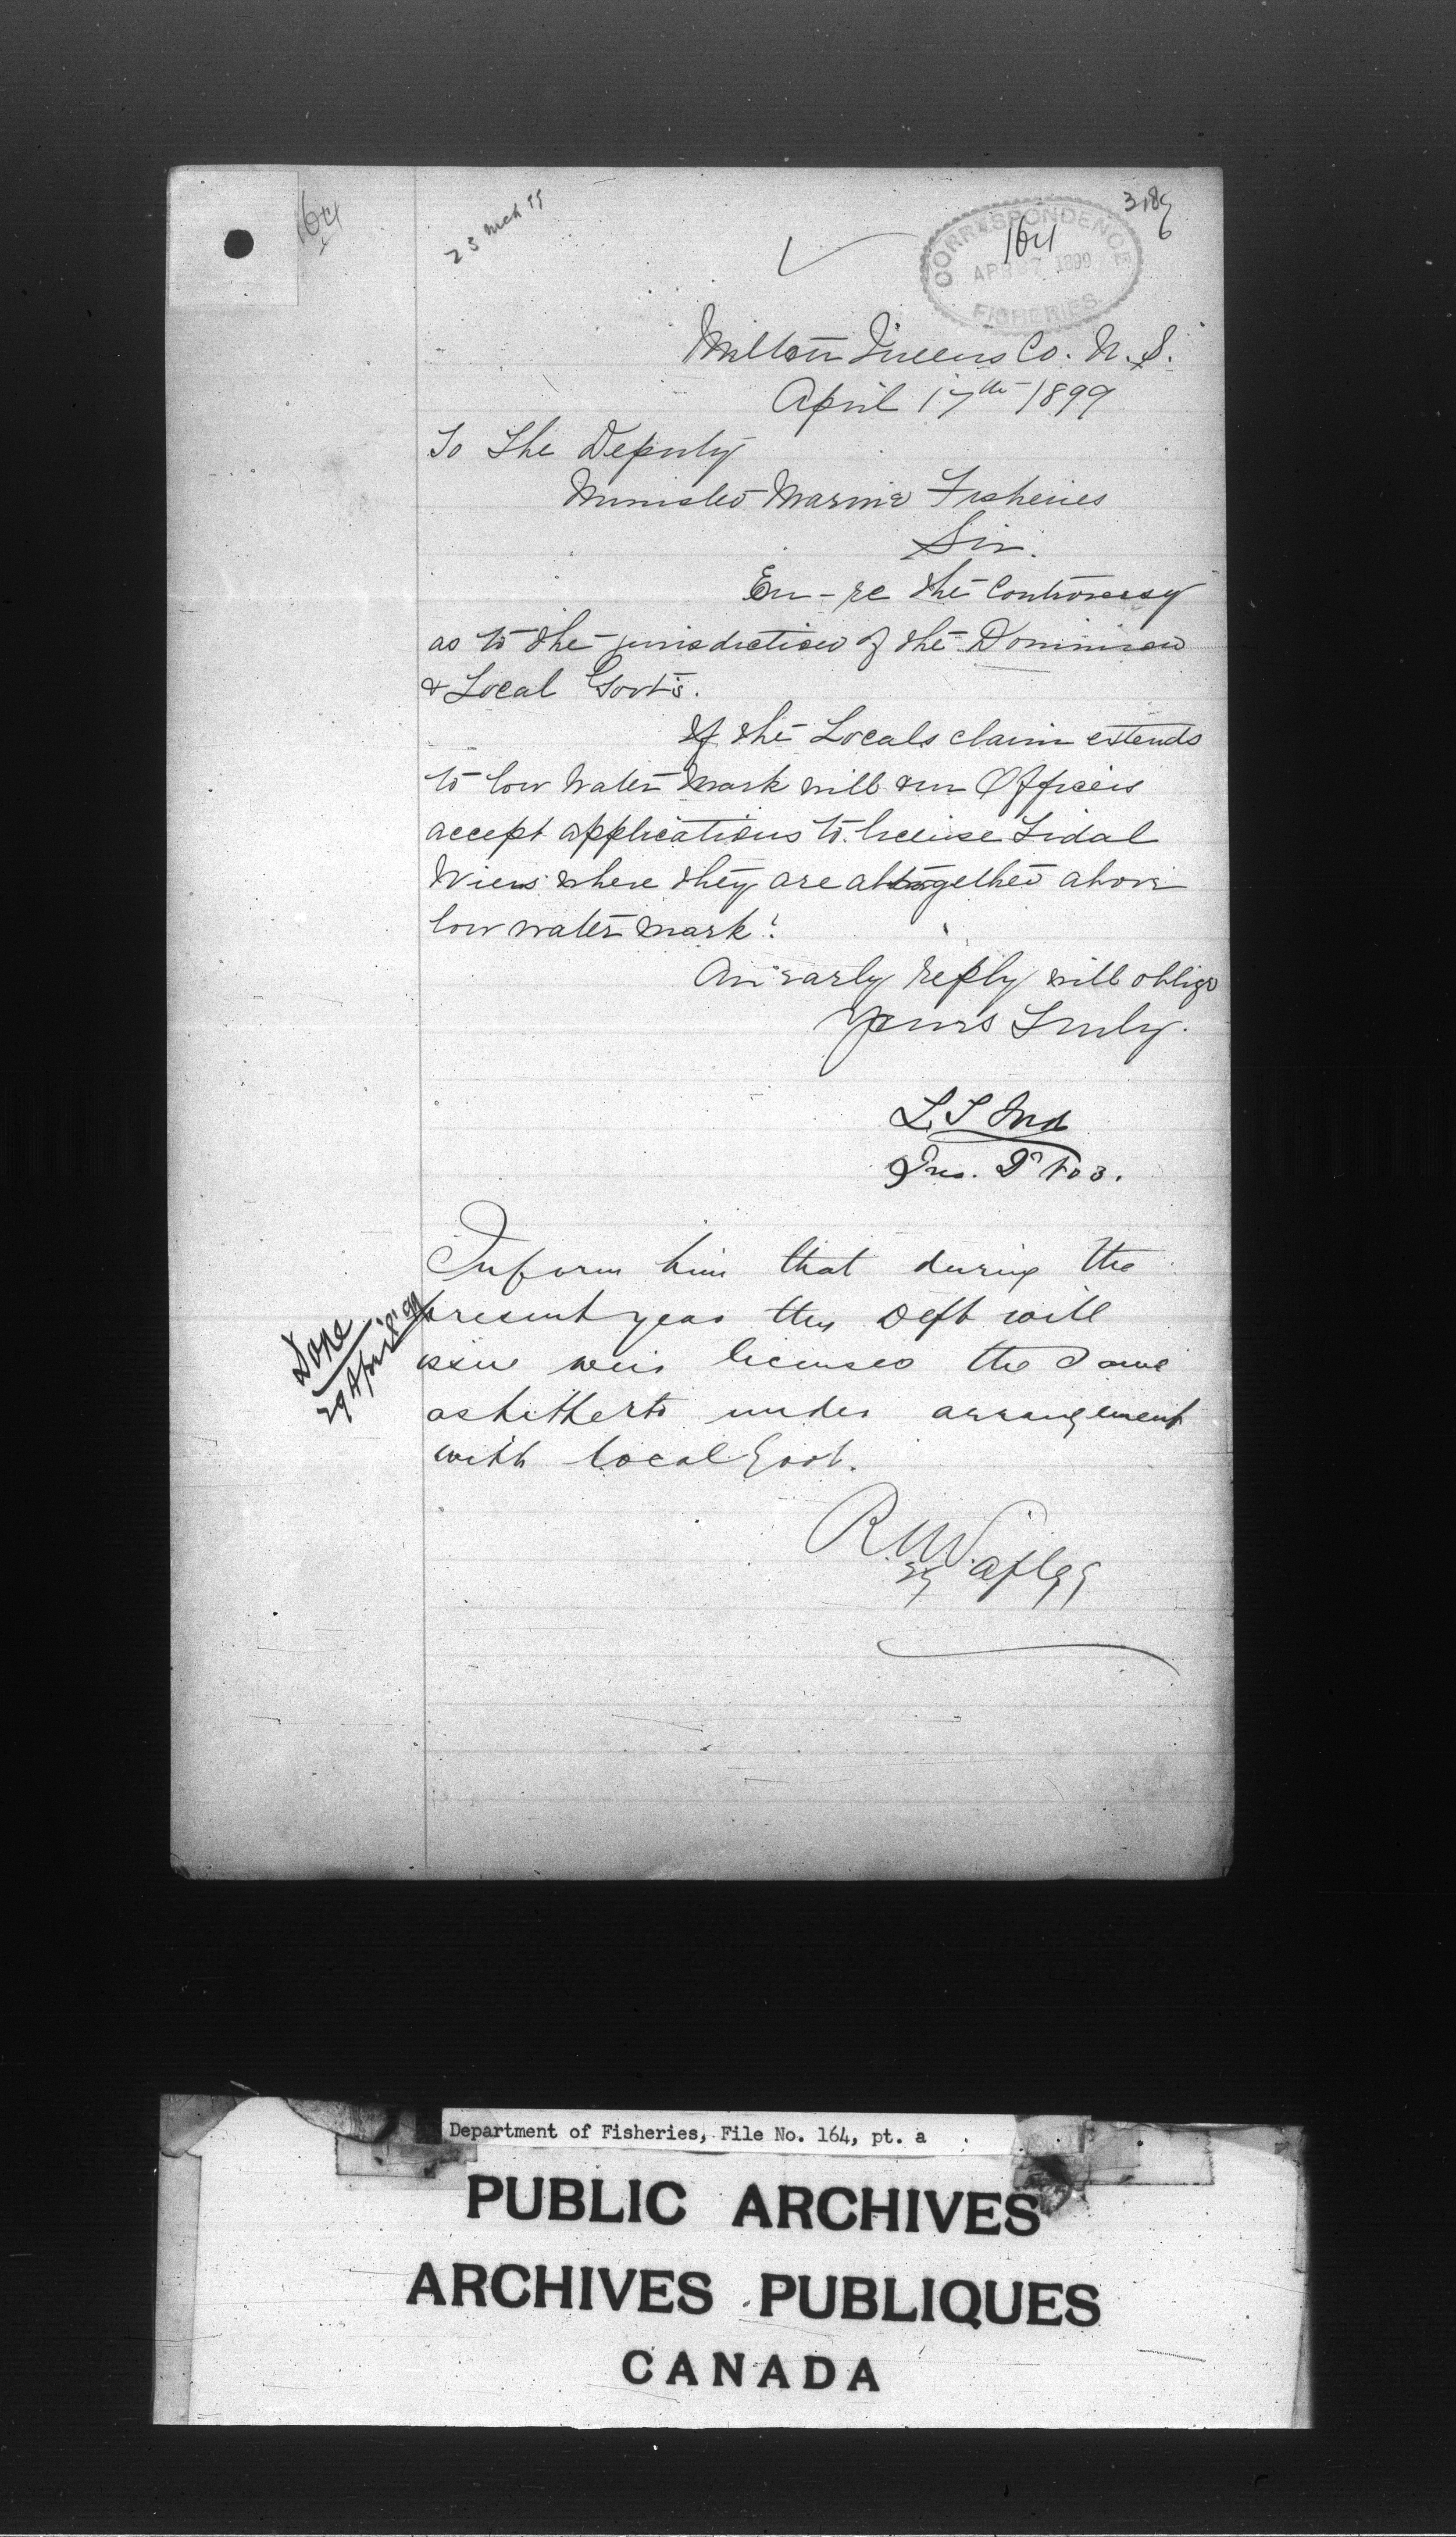 164
25 Mch 99
3186
CORRESPONDENCE
164
APR 27 1899
FISHERIES
Milton Queens Co. N. S.
April 17th 1899
To The Deputy
Minister Marine Fisheries
Sir.
En-re the Controversy
as to the jurisdiction of the Dominion
& Local Govt's.
If the Locals claim extends
to low water mark will our Officers
accept applications to license Tidal
Wiers where they are altogether above
low water mark?
An early reply will oblige
Yours Truly.
L. S.
Ins. D No 3.
Inform him that during the
present year this Dept will
issue weir licenses the same
as hitherto under arrangement
with Local Govt.
Done
29 April '99
R.
29 apl 99
Department of Fisheries, File No. 164, pt. a
PUBLIC ARCHIVES
ARCHIVES PUBLIQUES
CANADA